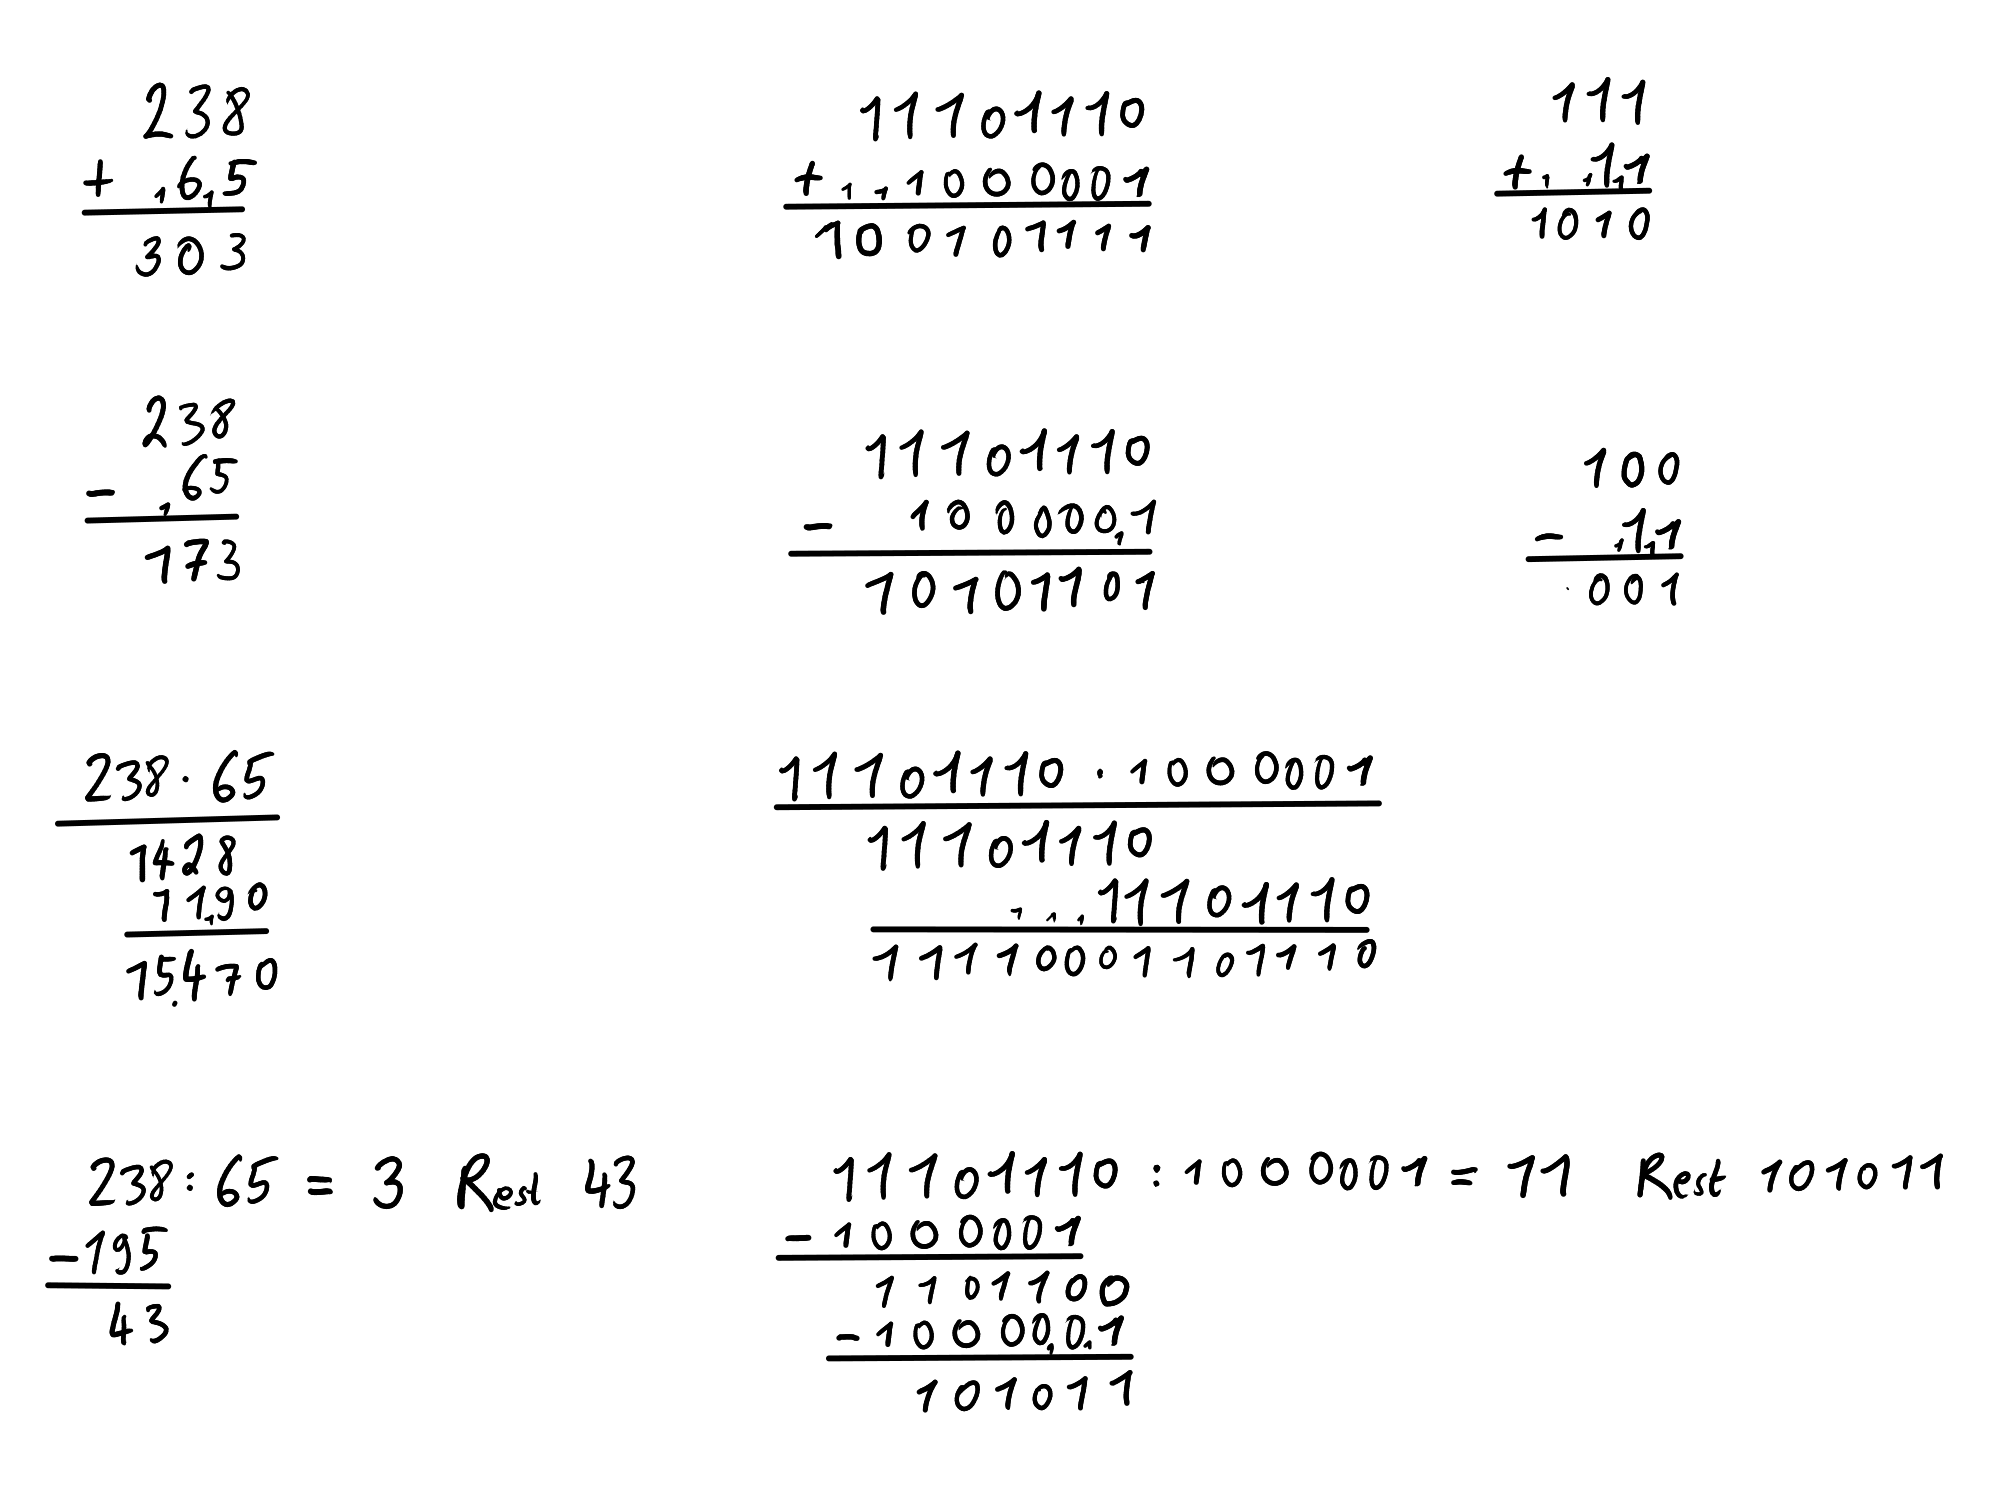 238
+ 65
303
11101110
+ 1 1 1000001
100101111
111
+ 1 1 11
1010
238
- 65
173
11101110
- 1000001
10101101
100
- 11
001
238 · 65
1428
1190
15.470
11101110 · 1000001
11101110
1 1 1 11101110
11110001101110
238 : 65 = 3 Rest 43
-195
43
11101110 : 1000001 = 11 Rest 101011
- 1000001
1101100
- 1000001
101011